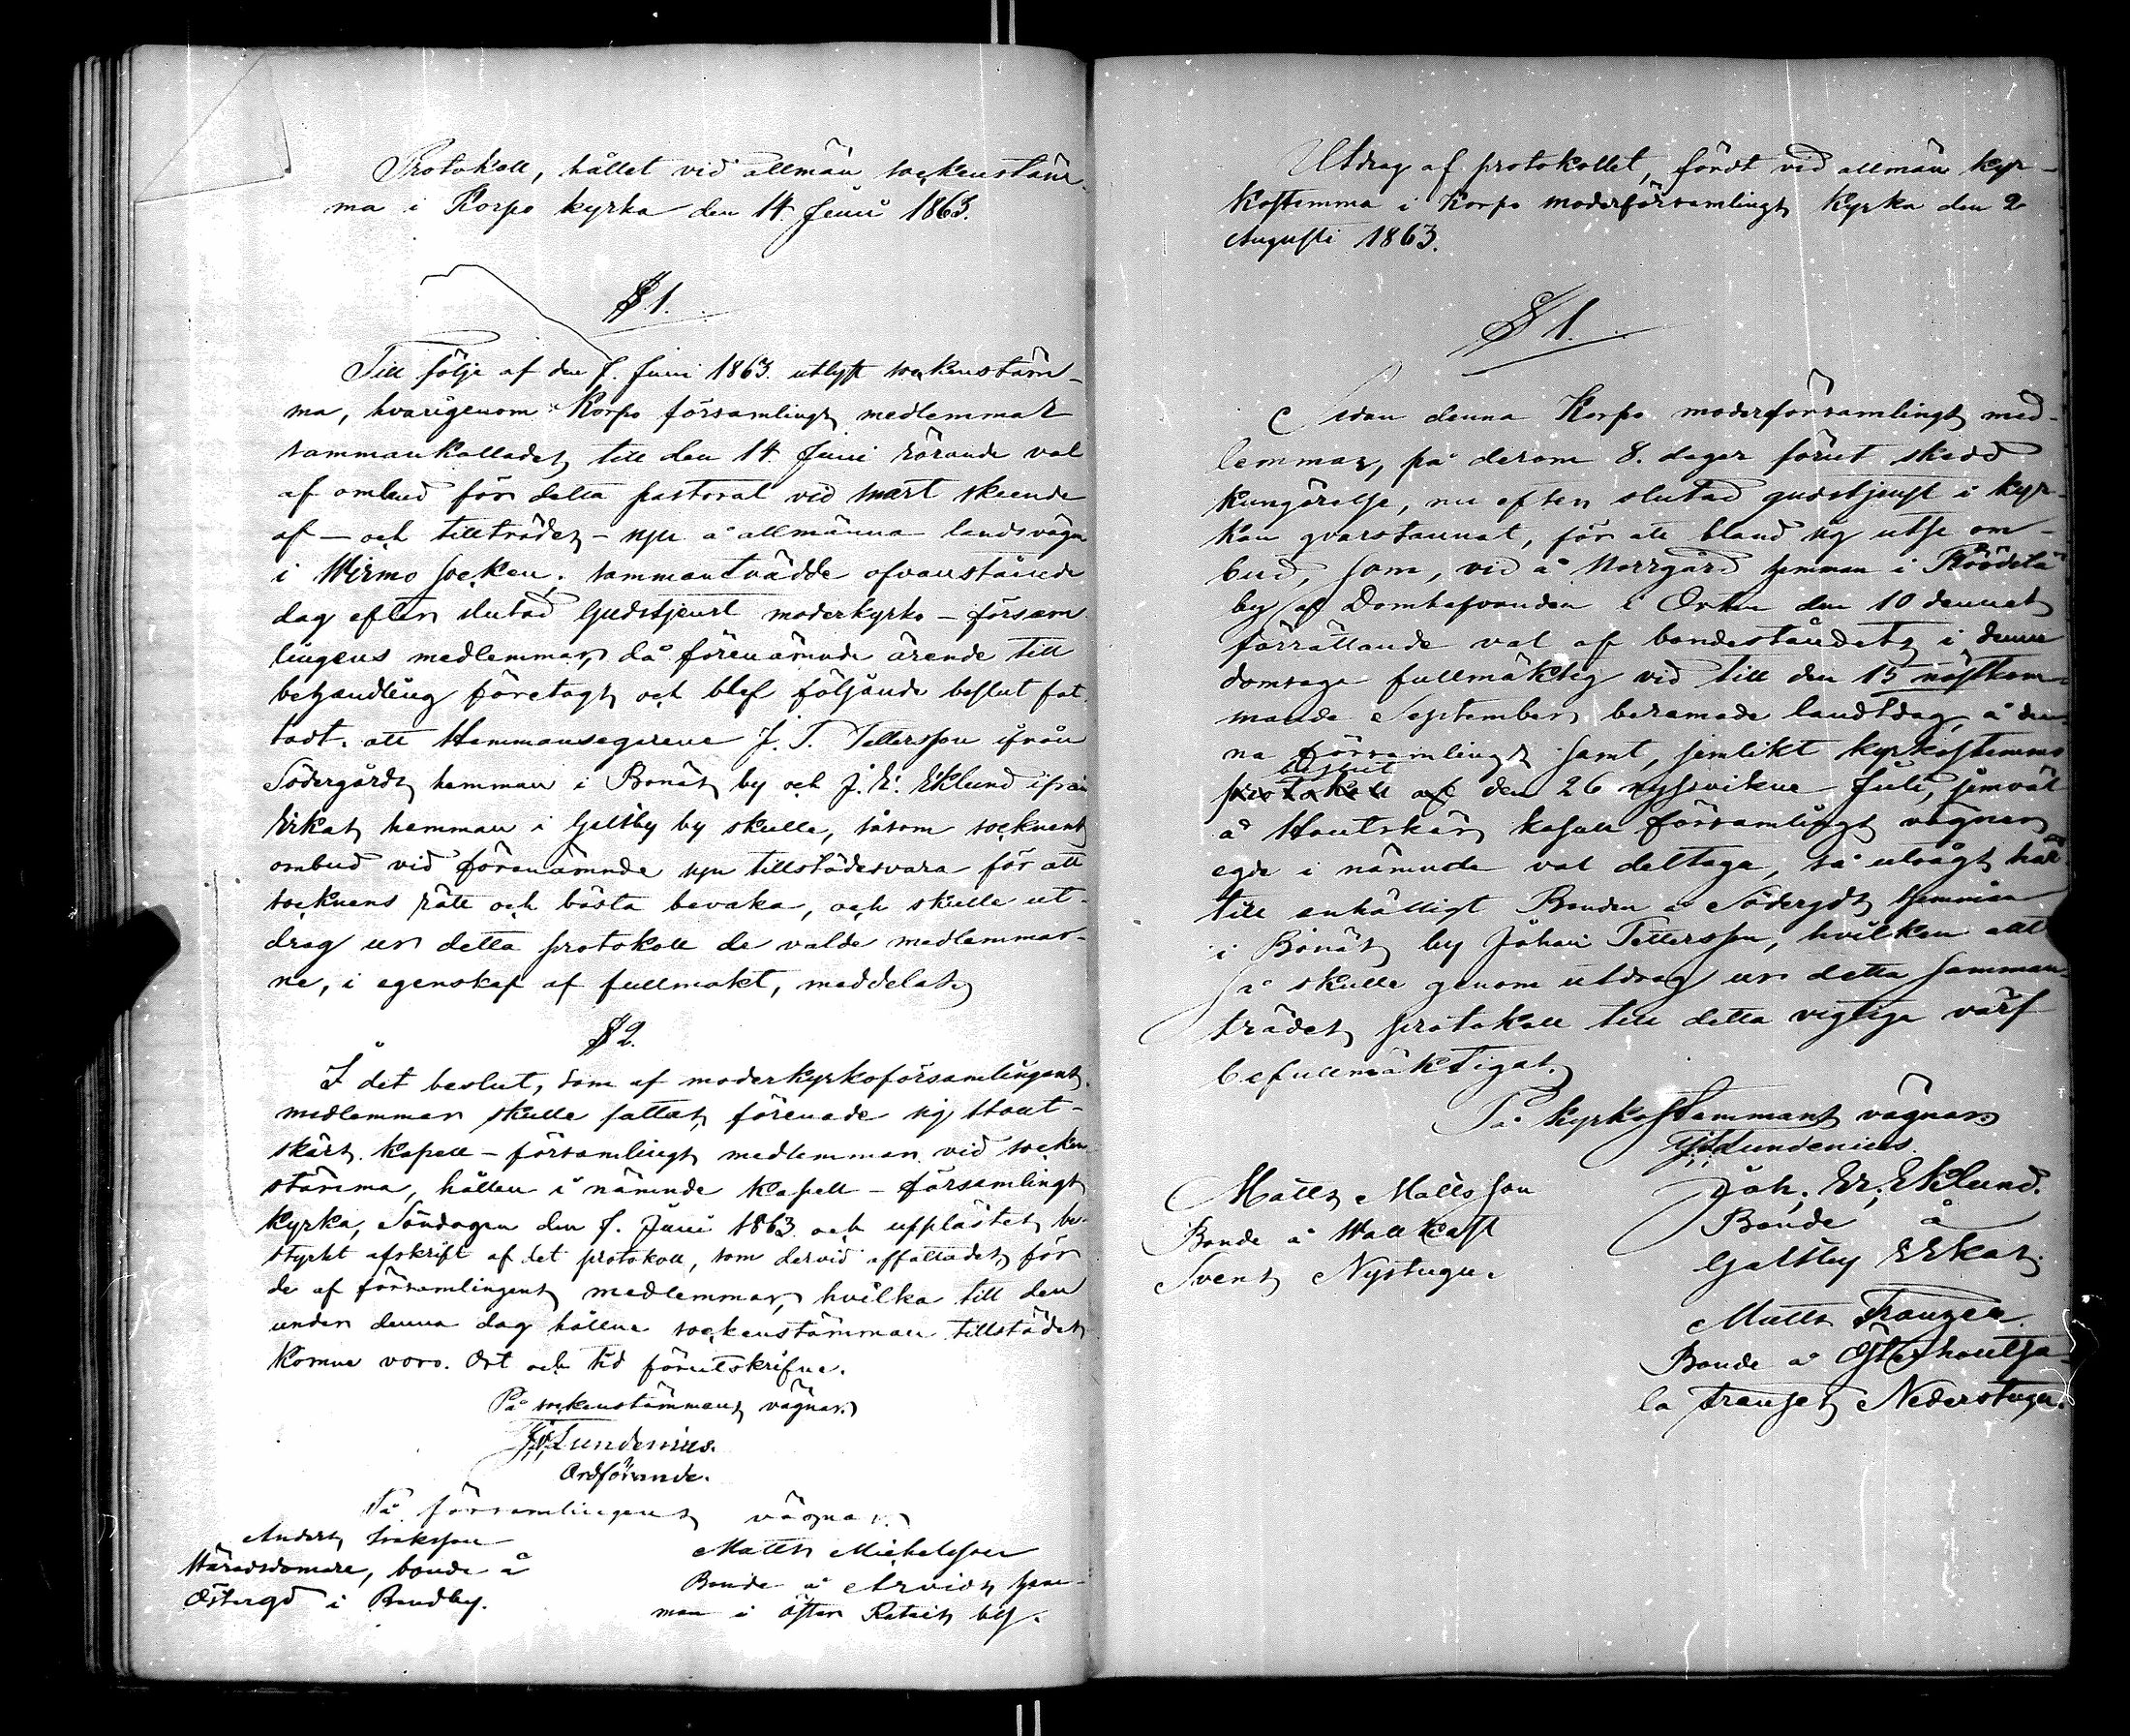 Protokoll, hållet vid allmän sockenstäm-
ma i Korpo kyrka den 14 Juni 1863.
§ 1.
Till följe af den 7. Juni 1863. utlyst sockenstäm-
ma, hvarigenom Korpo församlings medlemmar
sammankallades till den 14 Juni rörande val
af ombud för detta pastorat vid snart skeende
af- och tillträdes-syn å allmänna landsvägen
i Wirmo Socken. sammanträdde ofvanstående
dag efter slutad Gudstjenst moderkyrko-försam
lingens medlemmar, då förenämnde ärende till
behandling företogs och blef följande beslut fat-
tadt. att Hemmansegarene J. P. Pettersson ifrån
Södergårds hemman i Bonäs by och J. E. Eklund ifrån
Erkas hemman i Galtby by skulle, såsom socknens
ombud vid förenämnde syn tillstädesvara för att
socknens rätt och bästa bevaka, och skulle ut-
drag ur detta protokoll de valde medlemmar-
ne, i egenskap af fullmakt, meddelas.
§ 2.
I det beslut, som af moderkyrkoförsamlingens
medlemmar skulle fattas, förenade sig Hout-
skärs kapell-församlings medlemmar vid socken
stämma, hållen i nämnde Kapell-församlings
kyrka, Söndagen den 7. Juni 1863 och upplästes be-
styrkt afskrift af det protokoll, som dervid affattades, för
de af församlingens medlemmar, hvilka till den
under denna dag hållne sockenstämman tillstädes
komne voro. Ort och tid förutskrifne.
På sockenstämmans vägnar.
Lundenius.
Ordförande.
På församlingens vägnar.
Anders Isaksson
Häradsdomare, bonde å
Östergd i Rumlby.
Matts Michelsson
Bonde å Arvids hem-
man i Öster Retais by.
Utdrag af protokollet, fördt vid allmän kyr-
kostemma i Korpo moderförsamlings Kyrka den 2
Augusti 1863.
§ 1.
Sedan denna Korpo moderförsamlings med-
lemmar, på derom 8. dagar förut skedd
kungörelse, nu efter slutad gudstjenst i kyr-
kan qvarstannat, för att bland sig utse om-
bud, som, vid å Norrgård hemman i Röödilä
by af Domhafvanden i Orten den 10 dennes
förrättande val af bondeståndets i denna
domsaga fullmäktig vid till den 15 nästkom-
mande September beramade landtdag, å den-
na församlings samt, jemlikt kyrkostemmo
beslut
protokoll af den 26 nyssvikne Juli, jemväl
å Houtskärs kapell församlings vägnar
ega i nämnde val deltaga, så utsågs här
till enhälligt Bonden å Södergds hemman
i Bonäs by Johan Pettersson, hvilken allt
så skulle genom utdrag ur detta samman-
trädes protokoll till detta vigtiga värf
befullmäktigas.
På kyrkostemmans vägnar.
Lundenius.
Matts Mattsson
Bonde å Wattkast
Svens Nystugu.
Joh. Er. Eklund.
Bonde å
Galtby Erkas.
Matts Franzen.
Bonde å Österhoutsa-
la Franses Nederstugu.